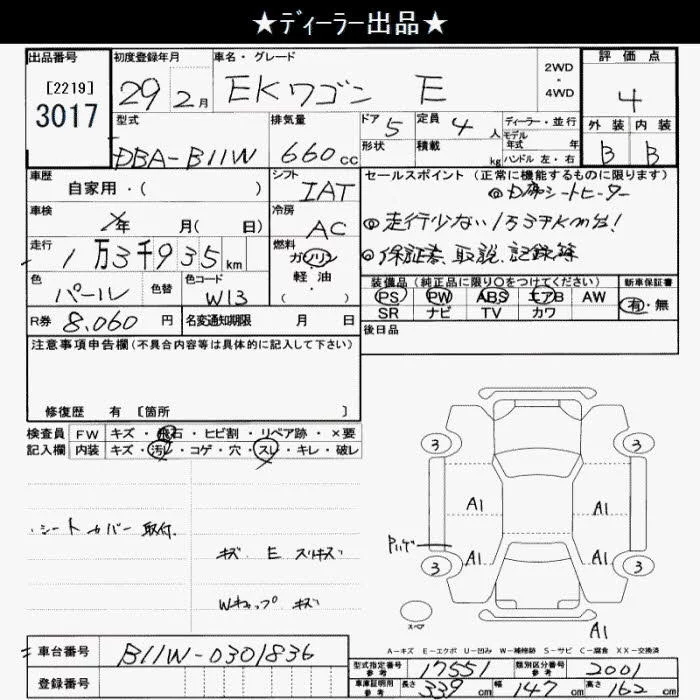 ★ディーラー出品★
出品番号 初度登録年月 車名・グレード 2WD・4WD 評価点
[2219]
3017 29年2月 EKワゴン E 4
型式 排気量 ドア 5 定員 4人 ディーラー・並行 外装 内装
DBA-B11W 660cc 形状 積載 kg モデル年式 年 ハンドル 左・右 B B
車歴 シフト セールスポイント(正常に機能するものに限ります)
自家用・( ) IAT ◎ シートヒーター
車検 冷房
年 月( 日) AC ◎走行少ない1万3千km台!
走行 燃料
1万3千935km ガソリン ◎保証書、取説、記録簿
色 色替 色コード 軽・油 装備品(純正品に限り○をつけてください) 新車保証書
パール W13 ・( ) PS PW ABS エアB AW 有・無
SR ナビ TV カワ
R券 8,060円 名変通知期限 月 日 後日品
注意事項申告欄(不具合内容等は具体的に記入して下さい)
修復歴 有 [箇所 ]
検査員 FW キズ・飛石・ヒビ割・リペア跡・×要
記入欄 内装 キズ・汚れ・コゲ・穴・スレ・キレ・破レ
3 3
A1 A1
シートカバー 取付
A1 A1
キズ E スリキズ
3 3
Wキャップ キズ
スペア
A1
A-キズ E-エクボ U-凹み W-補修跡 S-サビ C-腐食 XX-交換済
車台番号 B11W-0301836
型式指定番号 参考 17551 類別区分番号 参考 2001
登録番号
車庫証明用 参考 長さ 339cm 幅 147cm 高さ 162cm